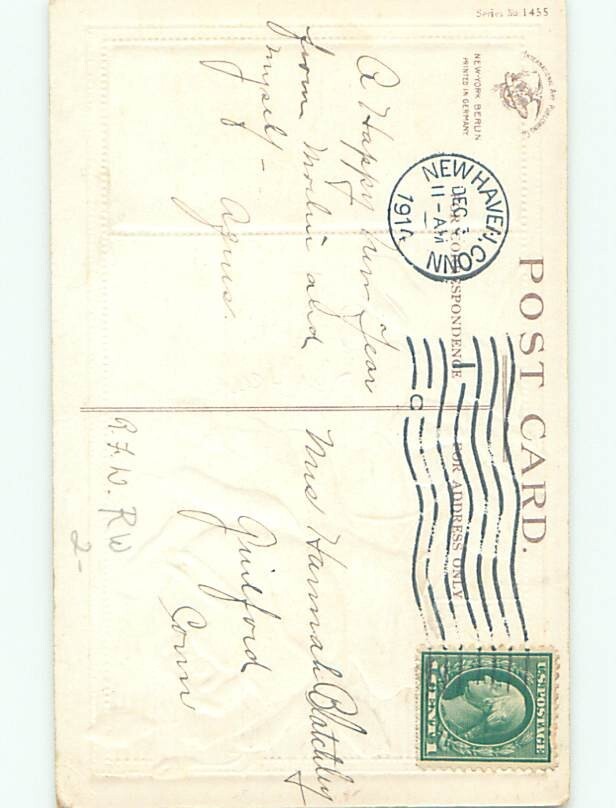 Series No 1455
POST CARD.
INTERNATIONAL ART PUBLISHING
NEW-YORK BERLIN
PRINTED IN GERMANY
FOR CORRESPONDENCE
FOR ADDRESS ONLY
NEW HAVEN, CONN
DEC
11-AM
1914
C
U.S. POSTAGE
1 CENT 1
A Happy New Year
from Mother and
myself -
Agnes.
Mrs Hannah Blatchley
Guilford
Conn
R.F.D.
RW
2-